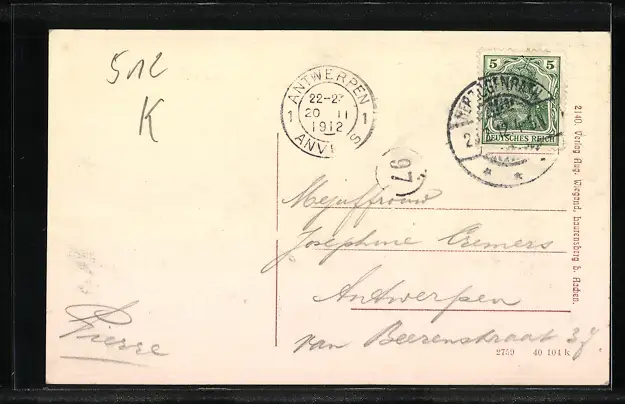 5012
K
ANTWERPEN
1 22-23 1
20 II
1912
ANVERS
HERZOGENRATH
5 5
DEUTSCHES REICH
97
Mejuffrouw
Josephine Cremers
Antwerpen
van Beerenstraat 37
Pierre
2140. Verlag Aug. Wiegand, Laurensberg b. Aachen.
2759 40 104 k